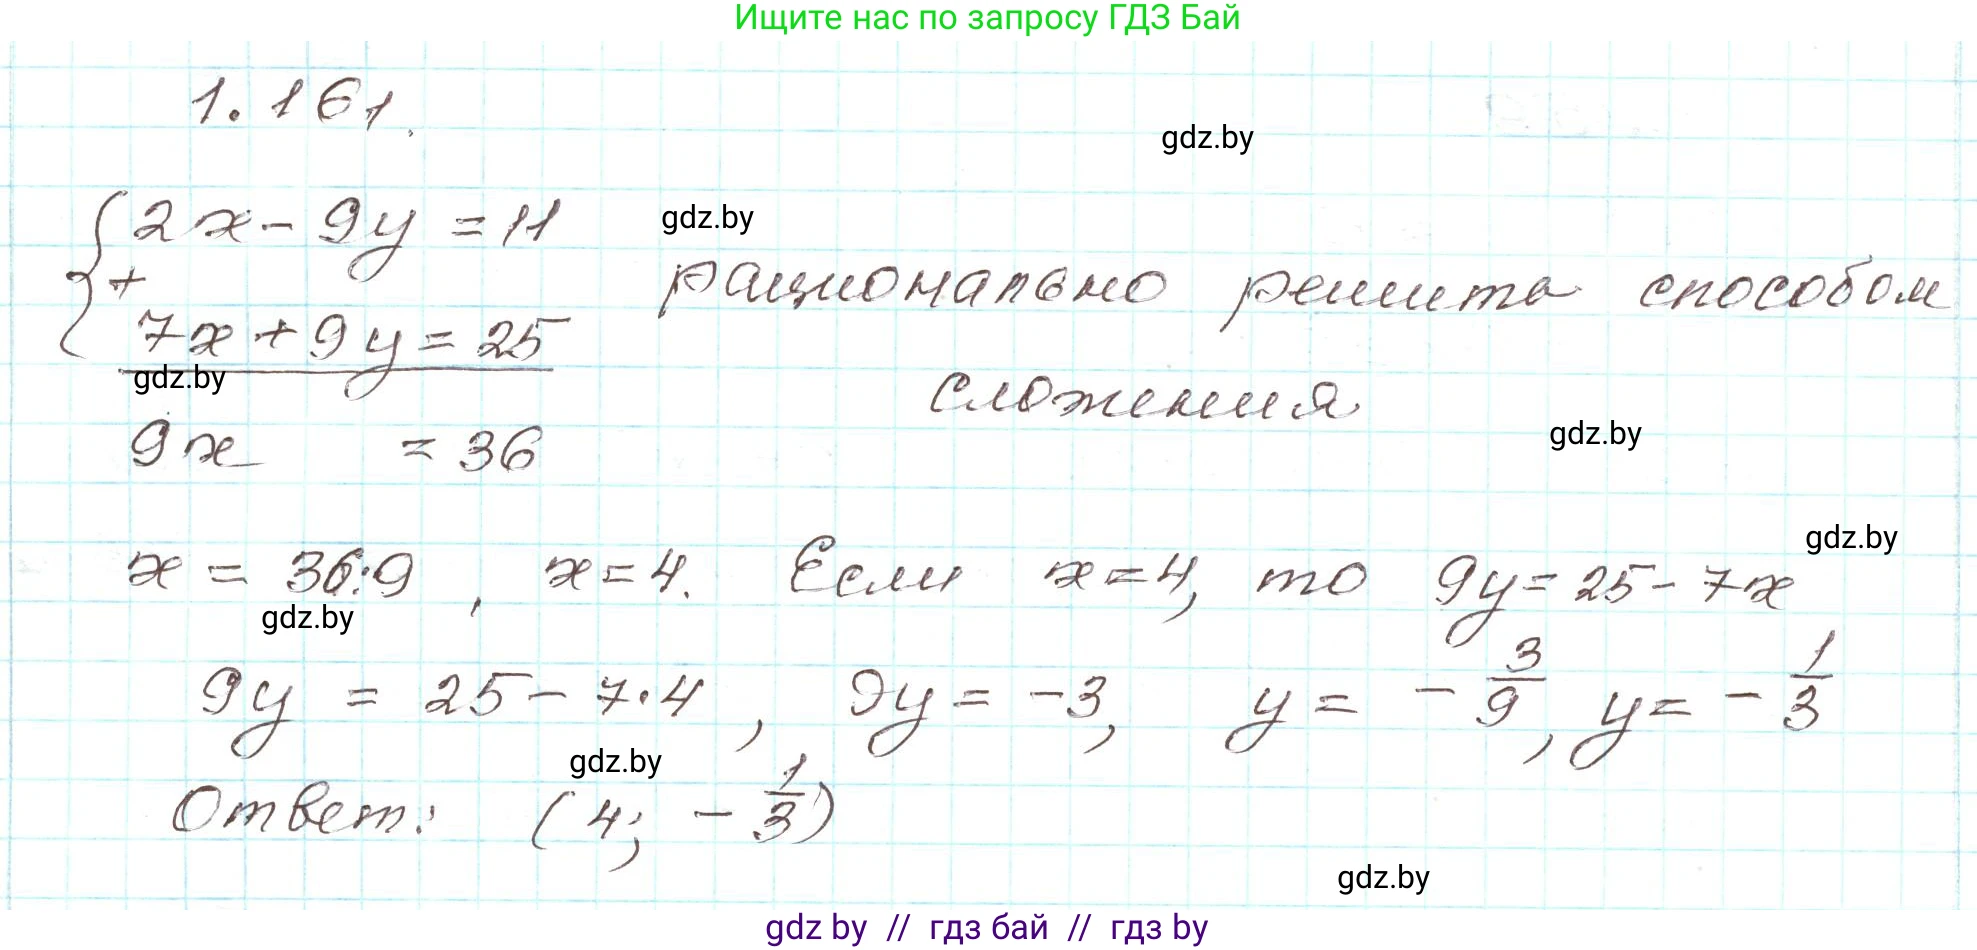 Ищите нас по запросу ГДЗ Бай
1.161.
gdz.by
2x - 9y = 11
gdz.by
+
рационально решить способом
7x + 9y = 25
gdz.by
сложения
gdz.by
9x = 36
gdz.by
x = 36:9, x = 4. Если x = 4, то 9y = 25 - 7x
gdz.by
9y = 25 - 7·4, 9y = -3, y = -3/9, y = -1/3
gdz.by
Ответ: (4; -1/3)
gdz.by
gdz by // гдз бай // гдз by